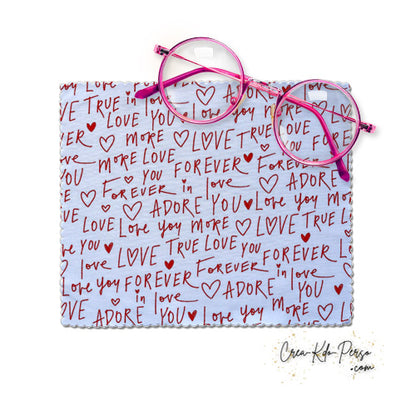 Love You Love
VE TRUE in
LOVE YOU MORE LOVE TRUE
MORE LOVE YOU FOREVER FOREVER
FOREVER in love ADORE
ADORE YOU Love you MORE
Love you MORE LOVE
YOU LOVE TRUE LOVE YOU
love FOREVER FOREVER in love
Love you in love ADORE YOU
VE ADORE YOU Love you MORE
Crea-Kdo-Perso
.com